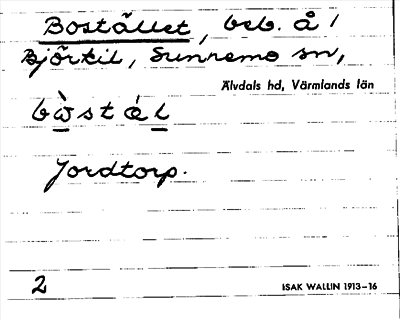 Bostället, beb. å
Björkil, Sunnemo sn,
Älvdals hd, Värmlands län
bo̱̊̀stal̠
Jordtorp.
2
ISAK WALLIN 1913–16